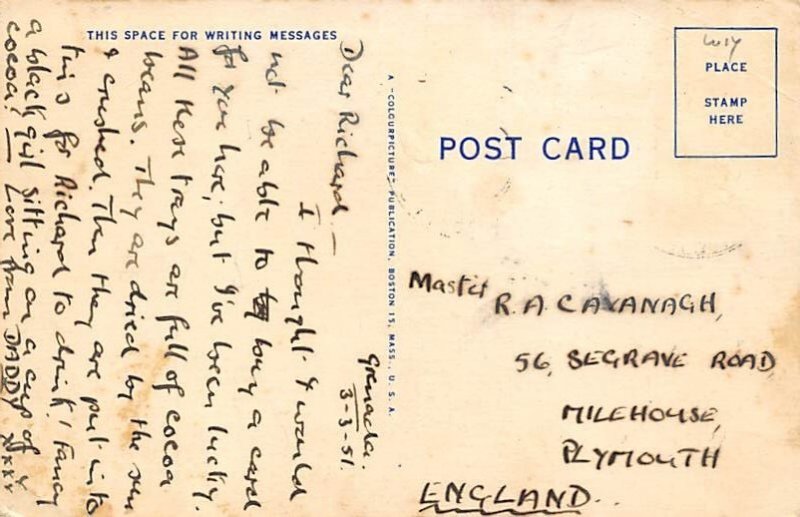 THIS SPACE FOR WRITING MESSAGES
Grenada.
3-3-51.
Dear Richard. —
I thought I would
not be able to buy a card
for you here; but I've been lucky.
All these trays are full of cocoa
beans. They are dried by the sun
& crushed. Then they are put into
tins for Richard to drink! Fancy
a black girl sitting on a cup of
cocoa! — Love from DADDY xxxx
A "COLOURPICTURE" PUBLICATION, BOSTON 15, MASS., U. S. A.
POST CARD
PLACE
STAMP
HERE
Master
R. A CAVANAGH,
56, SEGRAVE ROAD,
MILEHOUSE,
PLYMOUTH
ENGLAND.